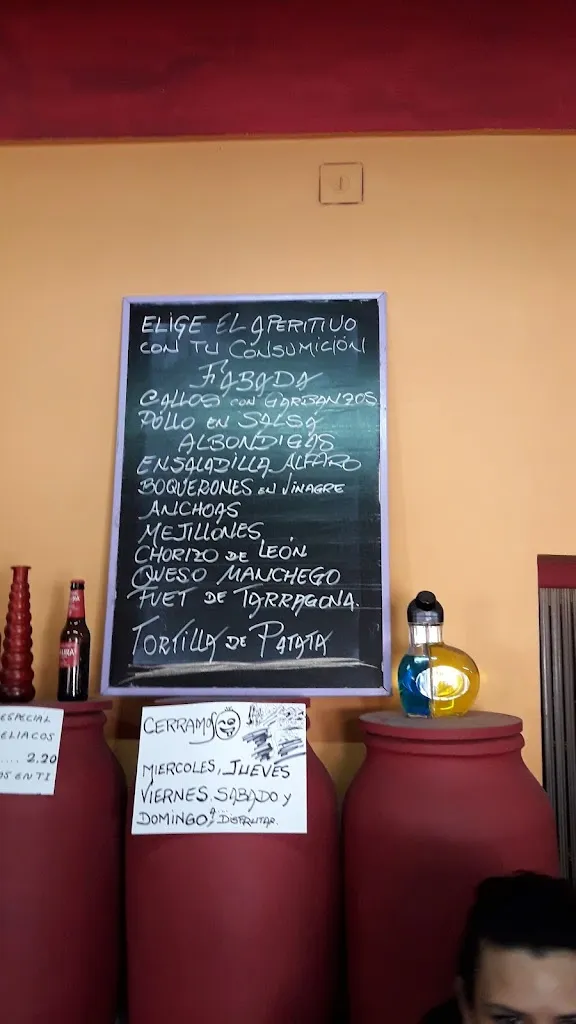 ELIGE EL APERITIVO
CON TU CONSUMICIÓN
FABADA
CALLOS CON GARBANZOS
POLLO EN SALSA
ALBONDIGAS
ENSALADILLA ALFARO
BOQUERONES EN VINAGRE
ANCHOAS
MEJILLONES
CHORIZO DE LEÓN
QUESO MANCHEGO
FUET DE TARRAGONA.
TORTILLA DE PATATA
ESPECIAL
ELIACOS
.... 2.20
OS EN TI
CERRAMOS
MIERCOLES, JUEVES
VIERNES. SABADO Y
DOMINGO A DISFRUTAR.